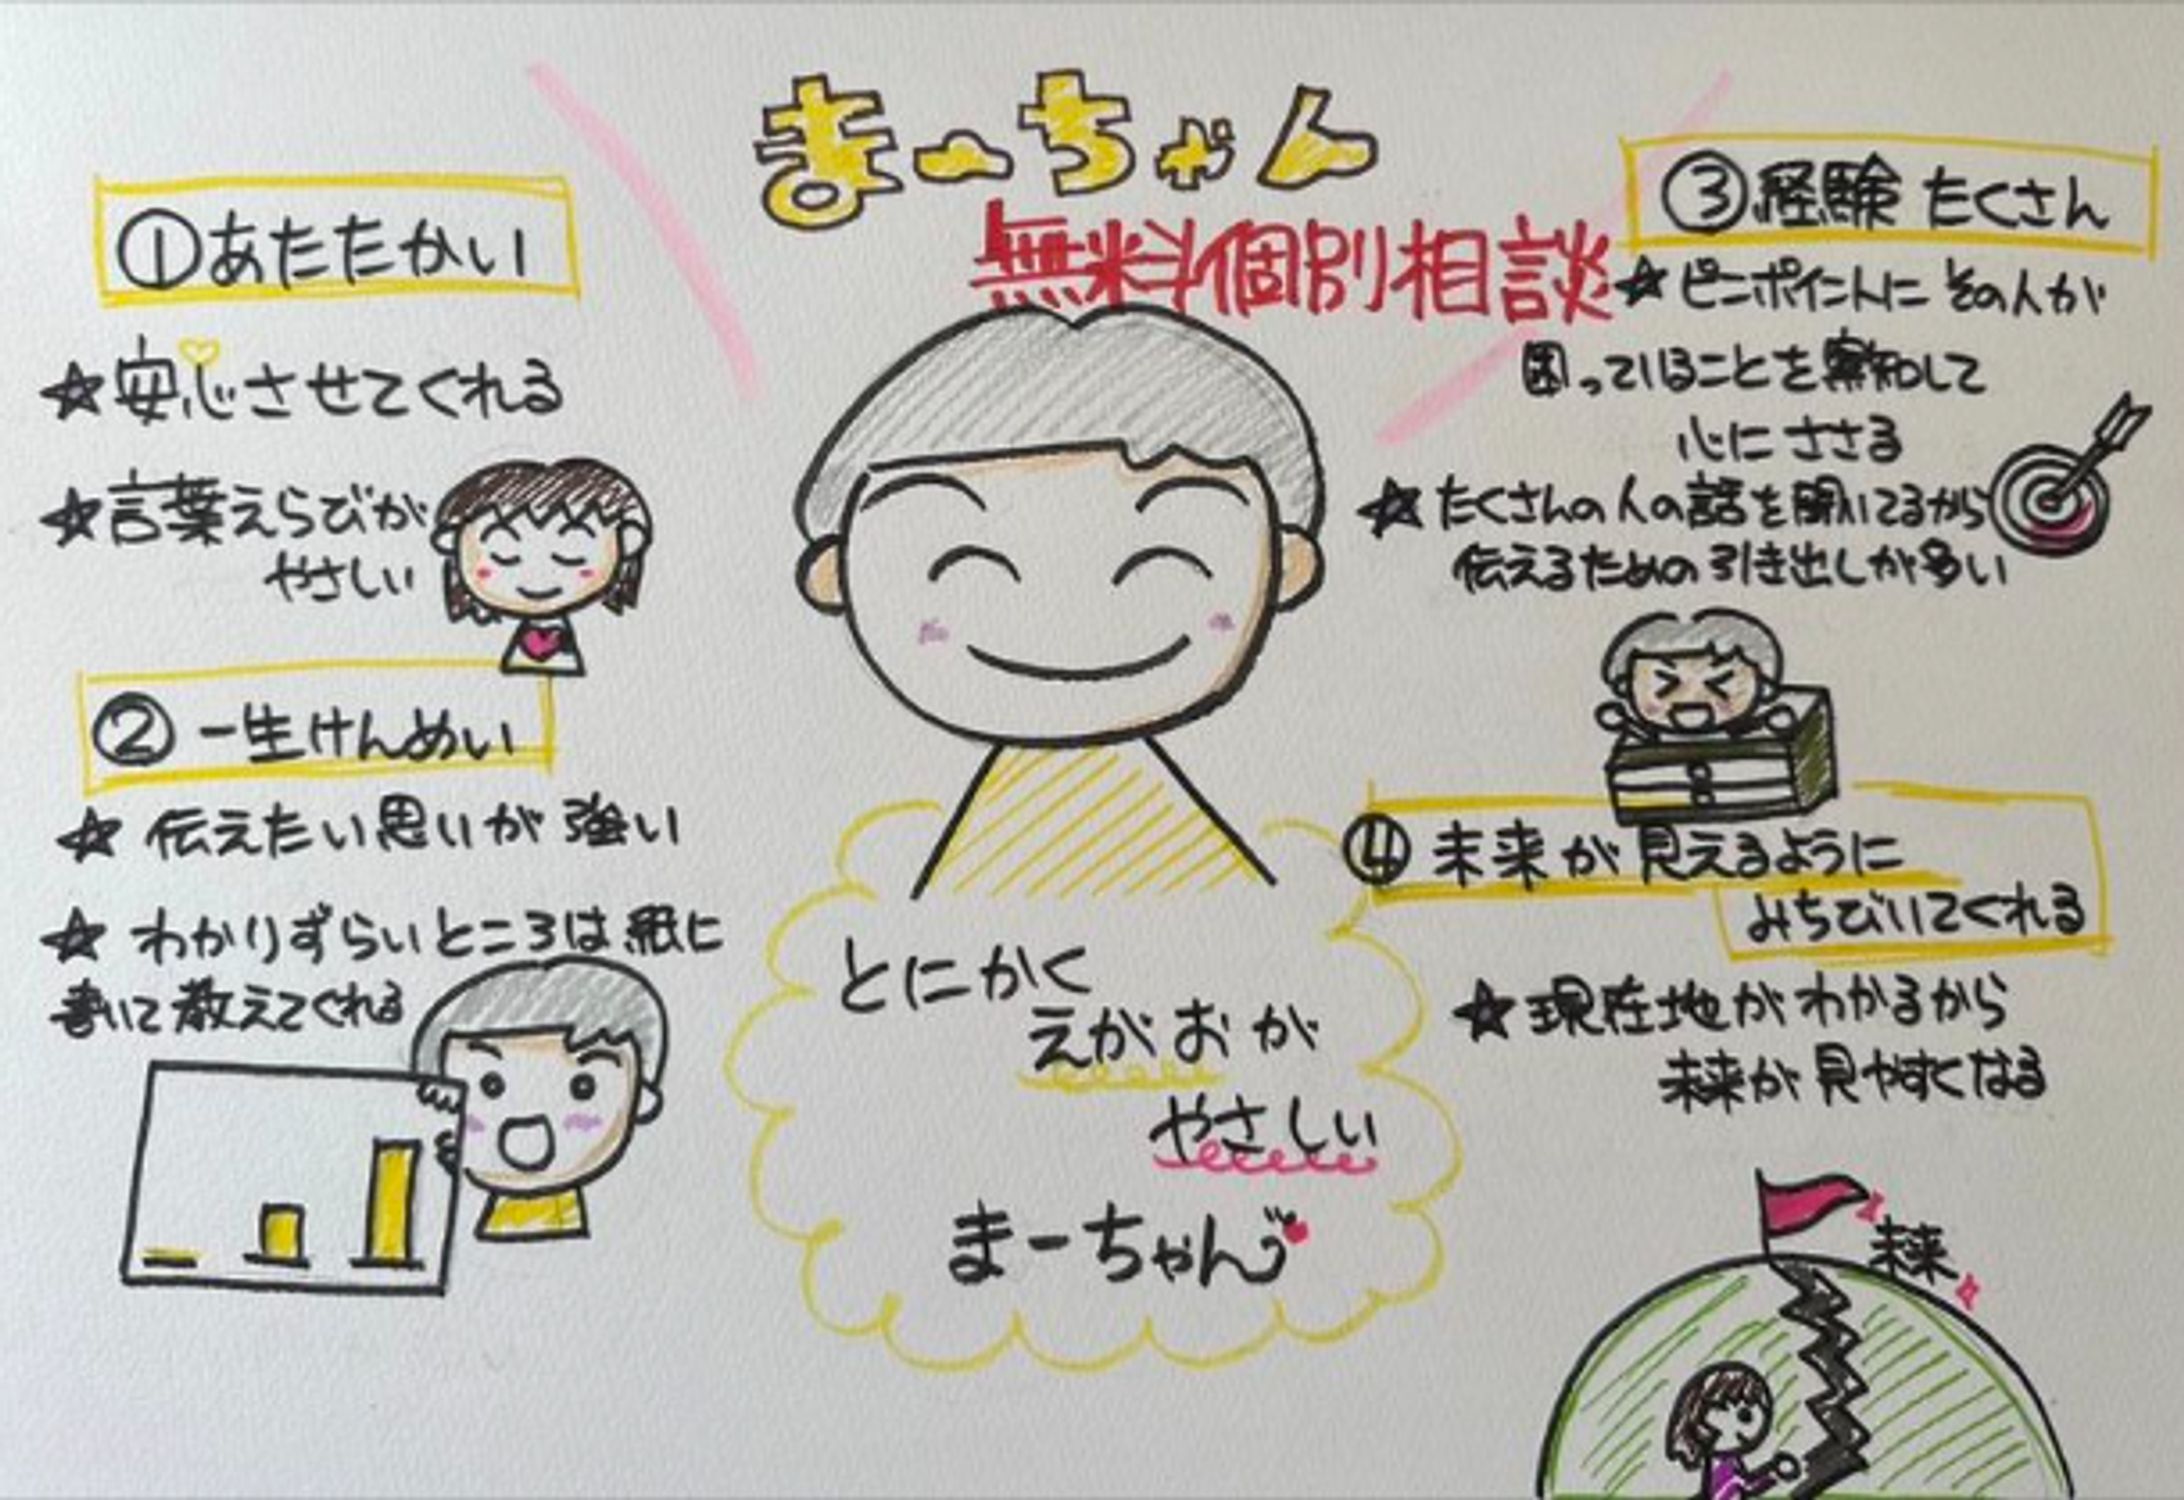 まーちゃん
無料個別相談
①あたたかい
☆安心させてくれる
☆言葉えらびが
やさしい
②一生けんめい
☆伝えたい思いが強い
☆わかりずらいところは紙に
書いて教えてくれる
③経験たくさん
☆ピンポイントにその人が
困っていることを察知して
心にささる
☆たくさんの人の話を聞いてるから
伝えるための引き出しが多い
④未来が見えるように
みちびいてくれる
☆現在地がわかるから
未来が見やすくなる
未来
とにかく
えがおが
やさしい
まーちゃん